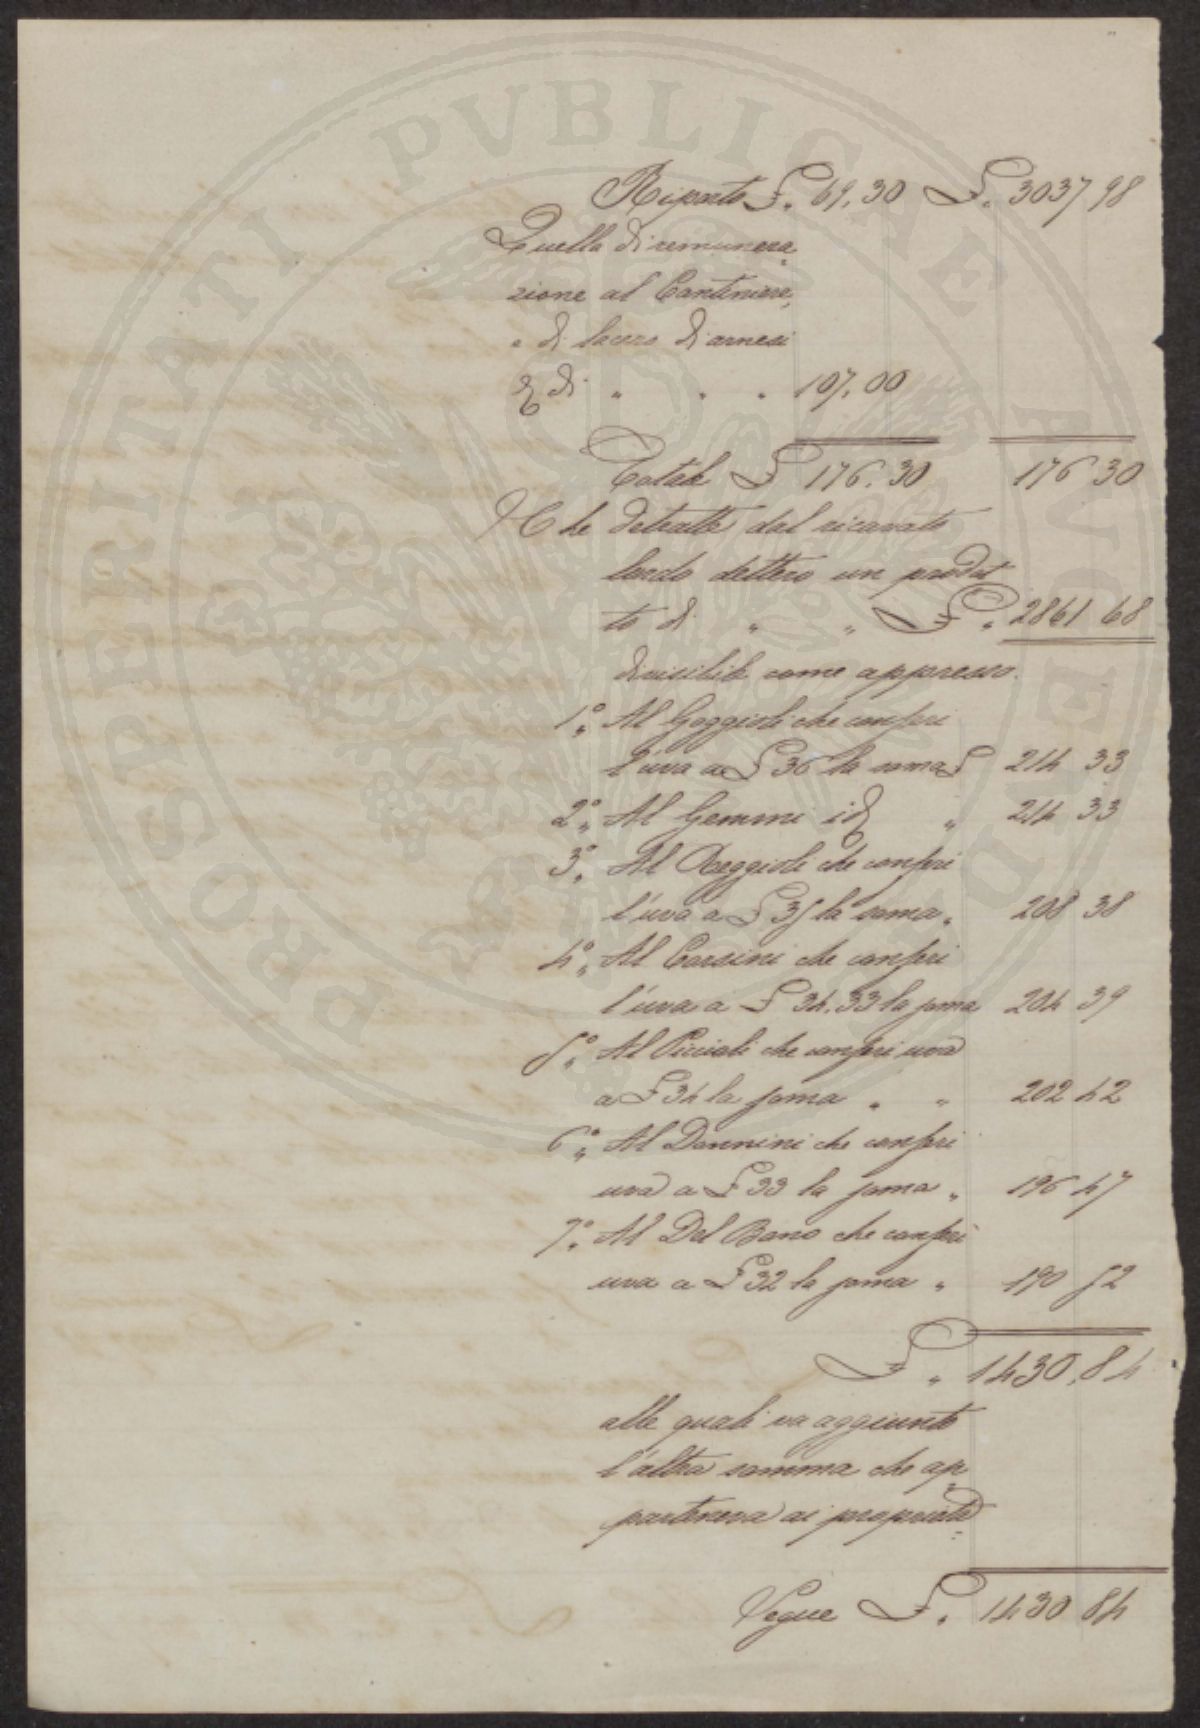 PROSPERITATI PVBLICAE AVGENDAE
Riporto £. 69,30 £. 3037 98
Quella di remunera
zione al Cantiniere,
e di lacero di arnesi
di " " " 107,00
Totale £ 176.30 176 30
Che detratte dal ricavato
lordo dettero un prodot
to di " " £. 2861 68
divisibile come appresso.
1º. Al Goggioli che conferì
l'uva a £ 36 la soma £ 214 33
2º. Al Gemmi id " 214 33
3º. Al Reggioli che conferì
l'uva a £ 35 la soma " 208 38
4º. Al Corsini che conferì
l'uva a £ 34.33 la soma 204 39
5º. Al Piccioli che conferì uva
a £ 34 la soma " " 202 42
6º. Al Dannini che conferì
uva a £ 33 la soma " 196 47
7º. Al Del Bano che conferì
uva a £ 32 la soma " 190 52
£. 1430,84
alle quali va aggiunto
l'altra somma che ap
parteneva ai
Segue £. 1430 84